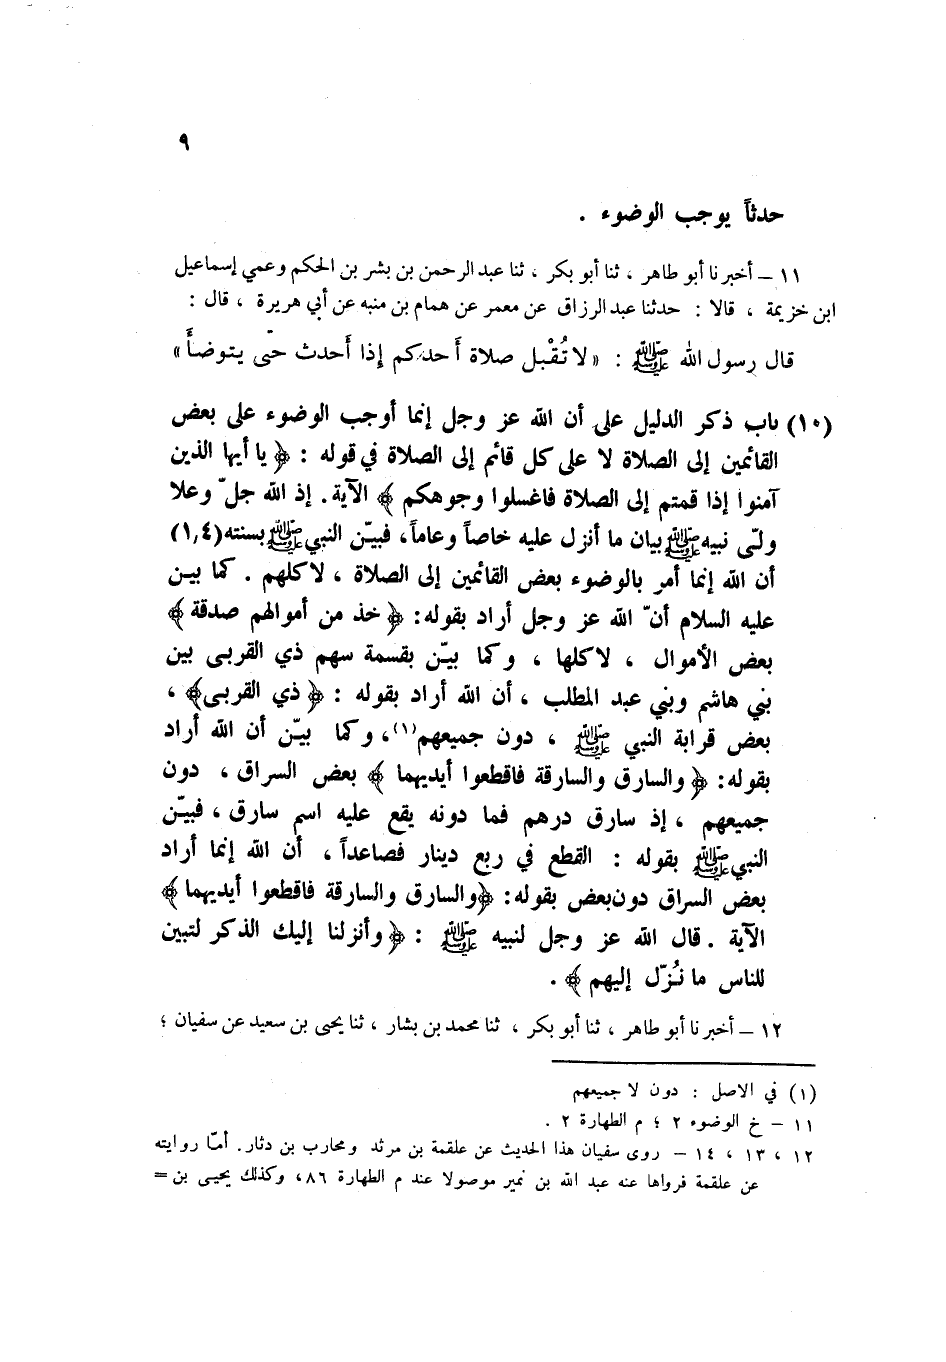 ٩
حدثاً يوجب الوضوء .
١١ – أخبرنا أبو طاهر ، ثنا أبو بكر ، ثنا عبد الرحمن بن بشر بن الحكم وعمي إسماعيل
ابن خزيمة ، قالا : حدثنا عبد الرزاق عن معمر عن همام بن منبه عن أبي هريرة ، قال :
قال رسول الله ﷺ : « لا تُقْبل صلاة أحدكم إذا أحدث حتّى يتوضأَ »
(١٠) باب ذكر الدليل على أن الله عز وجل إنما أوجب الوضوء على بعض
القائمين إلى الصلاة لا على كل قائم إلى الصلاة في قوله : ﴿ يا أيها الذين
آمنوا إذا قمتم إلى الصلاة فاغسلوا وجوهكم ﴾ الآية . إذ الله جلّ وعلا
ولّى نبيه ﷺ بيان ما أنزل عليه خاصاً وعاماً ، فبيّن النبي ﷺ بسنته (١,٤)
أن الله إنما أمر بالوضوء بعض القائمين إلى الصلاة ، لا كلهم . كما بين
عليه السلام أنّ الله عز وجل أراد بقوله : ﴿ خذ من أموالهم صدقة ﴾
بعض الأموال ، لا كلها ، وكما بيّن بقسمة سهم ذي القربى بين
بني هاشم وبني عبد المطلب ، أن الله أراد بقوله : ﴿ ذي القربى ﴾ ،
بعض قرابة النبي ﷺ ، دون جميعهم (١) ، وكما بيّن أن الله أراد
بقوله : ﴿ والسارق والسارقة فاقطعوا أيديهما ﴾ بعض السراق ، دون
جميعهم ، إذ سارق درهم فما دونه يقع عليه اسم سارق ، فبيّن
النبي ﷺ بقوله : القطع في ربع دينار فصاعداً ، أن الله إنما أراد
بعض السراق دون بعض بقوله : ﴿ والسارق والسارقة فاقطعوا أيديهما ﴾
الآية . قال الله عز وجل لنبيه ﷺ : ﴿ وأنزلنا إليك الذكر لتبين
للناس ما نُزّل إليهم ﴾ .
١٢ – أخبرنا أبو طاهر ، ثنا أبو بكر ، ثنا محمد بن بشار ، ثنا يحيى بن سعيد عن سفيان ؛
(١) في الاصل : دون لا جميعهم
١١ – خ الوضوء ٢ ؛ م الطهارة ٢ .
١٢ ، ١٣ ، ١٤ – روى سفيان هذا الحديث عن علقمة بن مرثد ومحارب بن دثار . أمّا روايته
عن علقمة فرواها عنه عبد الله بن نمير موصولا عند م الطهارة ٨٦ ، وكذلك يحيى بن =